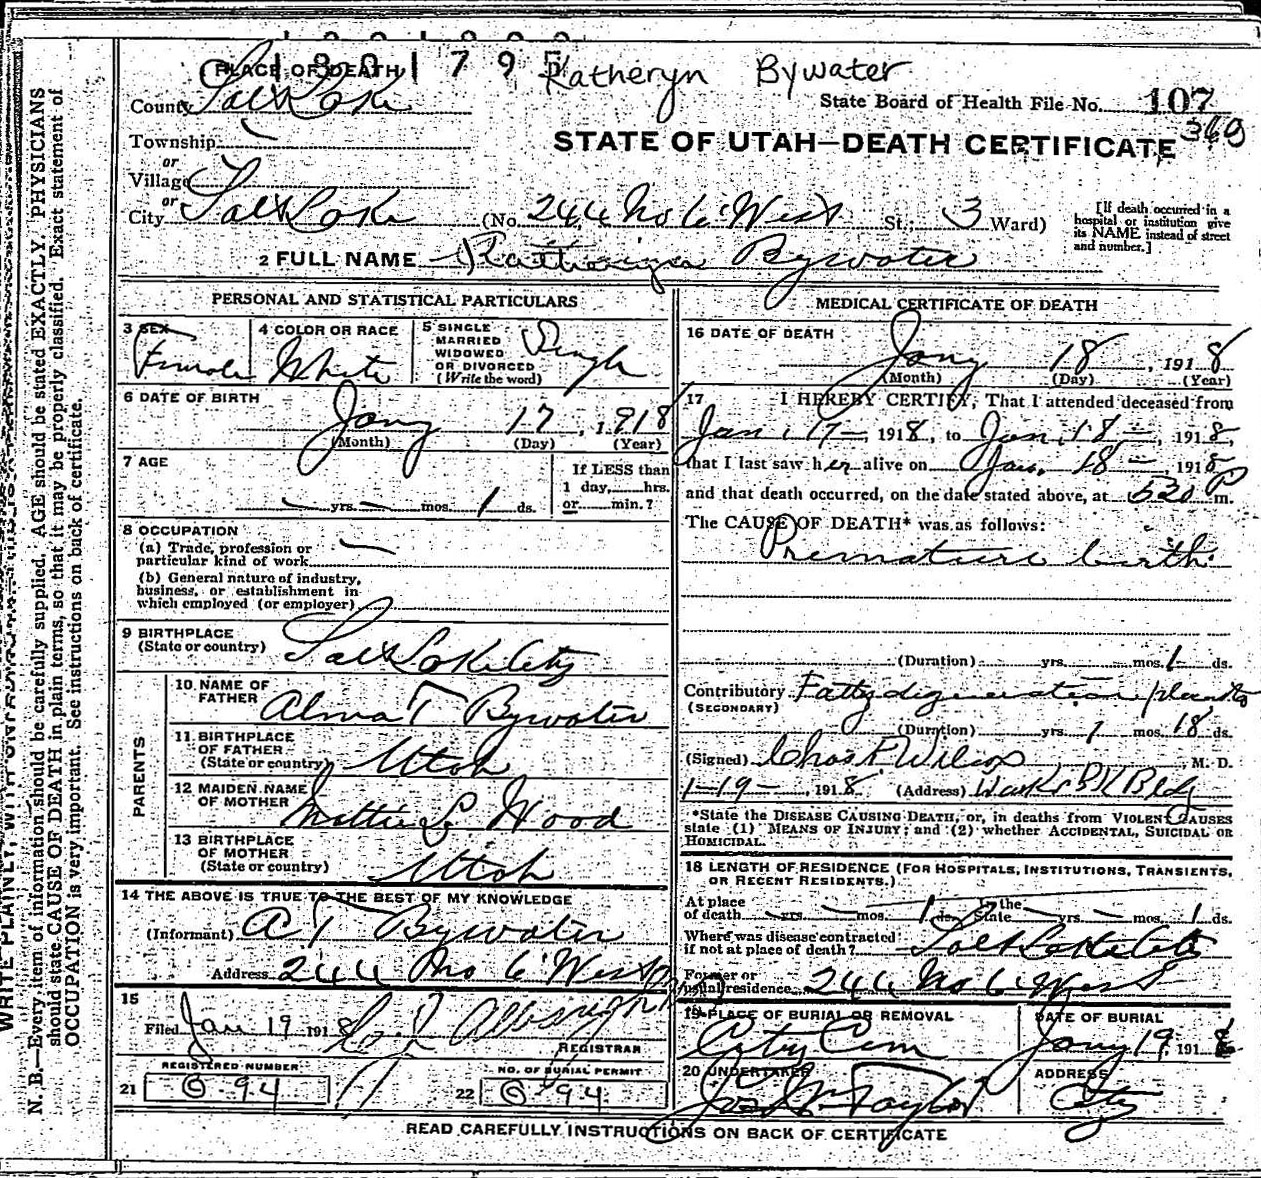 1801795 Katheryn Bywater
PLACE OF DEATH
County Salt Lake
State Board of Health File No. 107
369
Township
STATE OF UTAH—DEATH CERTIFICATE
or
Village
or
City Salt Lake (No. 244 No 6 West St.; 3 Ward)
[If death occurred in a hospital or institution give its NAME instead of street and number.]
2 FULL NAME Bywater
PERSONAL AND STATISTICAL PARTICULARS
3 SEX Female
4 COLOR OR RACE White
5 SINGLE MARRIED WIDOWED OR DIVORCED (Write the word) Single
6 DATE OF BIRTH
Jany 17, 1918
(Month) (Day) (Year)
7 AGE
If LESS than 1 day, hrs. or min.?
— yrs. — mos. 1 ds.
8 OCCUPATION
(a) Trade, profession or particular kind of work —
(b) General nature of industry, business, or establishment in which employed (or employer)
9 BIRTHPLACE
(State or country) Salt Lake City
PARENTS
10 NAME OF FATHER Alma T Bywater
11 BIRTHPLACE OF FATHER (State or country) Utah
12 MAIDEN NAME OF MOTHER Mattie L Wood
13 BIRTHPLACE OF MOTHER (State or country) Utah
14 THE ABOVE IS TRUE TO THE BEST OF MY KNOWLEDGE
(Informant) A T Bywater
Address 244 No 6 West
15
Filed Jan 19 1918
REGISTRAR
REGISTERED NUMBER
21 G-94
NO. OF BURIAL PERMIT
22 G-94
MEDICAL CERTIFICATE OF DEATH
16 DATE OF DEATH
Jany 18, 1918
(Month) (Day) (Year)
17 I HEREBY CERTIFY, That I attended deceased from
Jan. 17—, 1918, to Jan. 18—, 1918,
that I last saw her alive on Jan. 18—, 1918
and that death occurred, on the date stated above, at 520 P m.
The CAUSE OF DEATH* was as follows:
Premature birth.
(Duration) yrs. mos. 1 ds.
Contributory Fatty degeneration
(SECONDARY)
(Duration) yrs. 1 mos. 18 ds.
(Signed) Chas F Wilcox, M. D.
1-19-, 1918 (Address) Bk Bldg
*State the DISEASE CAUSING DEATH, or, in deaths from VIOLENT CAUSES
state (1) MEANS OF INJURY; and (2) whether ACCIDENTAL, SUICIDAL OR
HOMICIDAL.
18 LENGTH OF RESIDENCE (FOR HOSPITALS, INSTITUTIONS, TRANSIENTS,
OR RECENT RESIDENTS.)
At place of death — yrs. — mos. 1 ds. In the State — yrs. — mos. 1 ds.
Where was disease contracted if not at place of death? Salt Lake City
Former or usual residence 244 No 6 West
19 PLACE OF BURIAL OR REMOVAL
City Cem
DATE OF BURIAL
Jany 19, 1918
20 UNDERTAKER
Jos Wm Taylor
ADDRESS
City
READ CAREFULLY INSTRUCTIONS ON BACK OF CERTIFICATE
N. B.—Every item of information should be carefully supplied. AGE should be stated EXACTLY. PHYSICIANS
should state CAUSE OF DEATH in plain terms, so that it may be properly classified. Exact statement of
OCCUPATION is very important. See instructions on back of certificate.